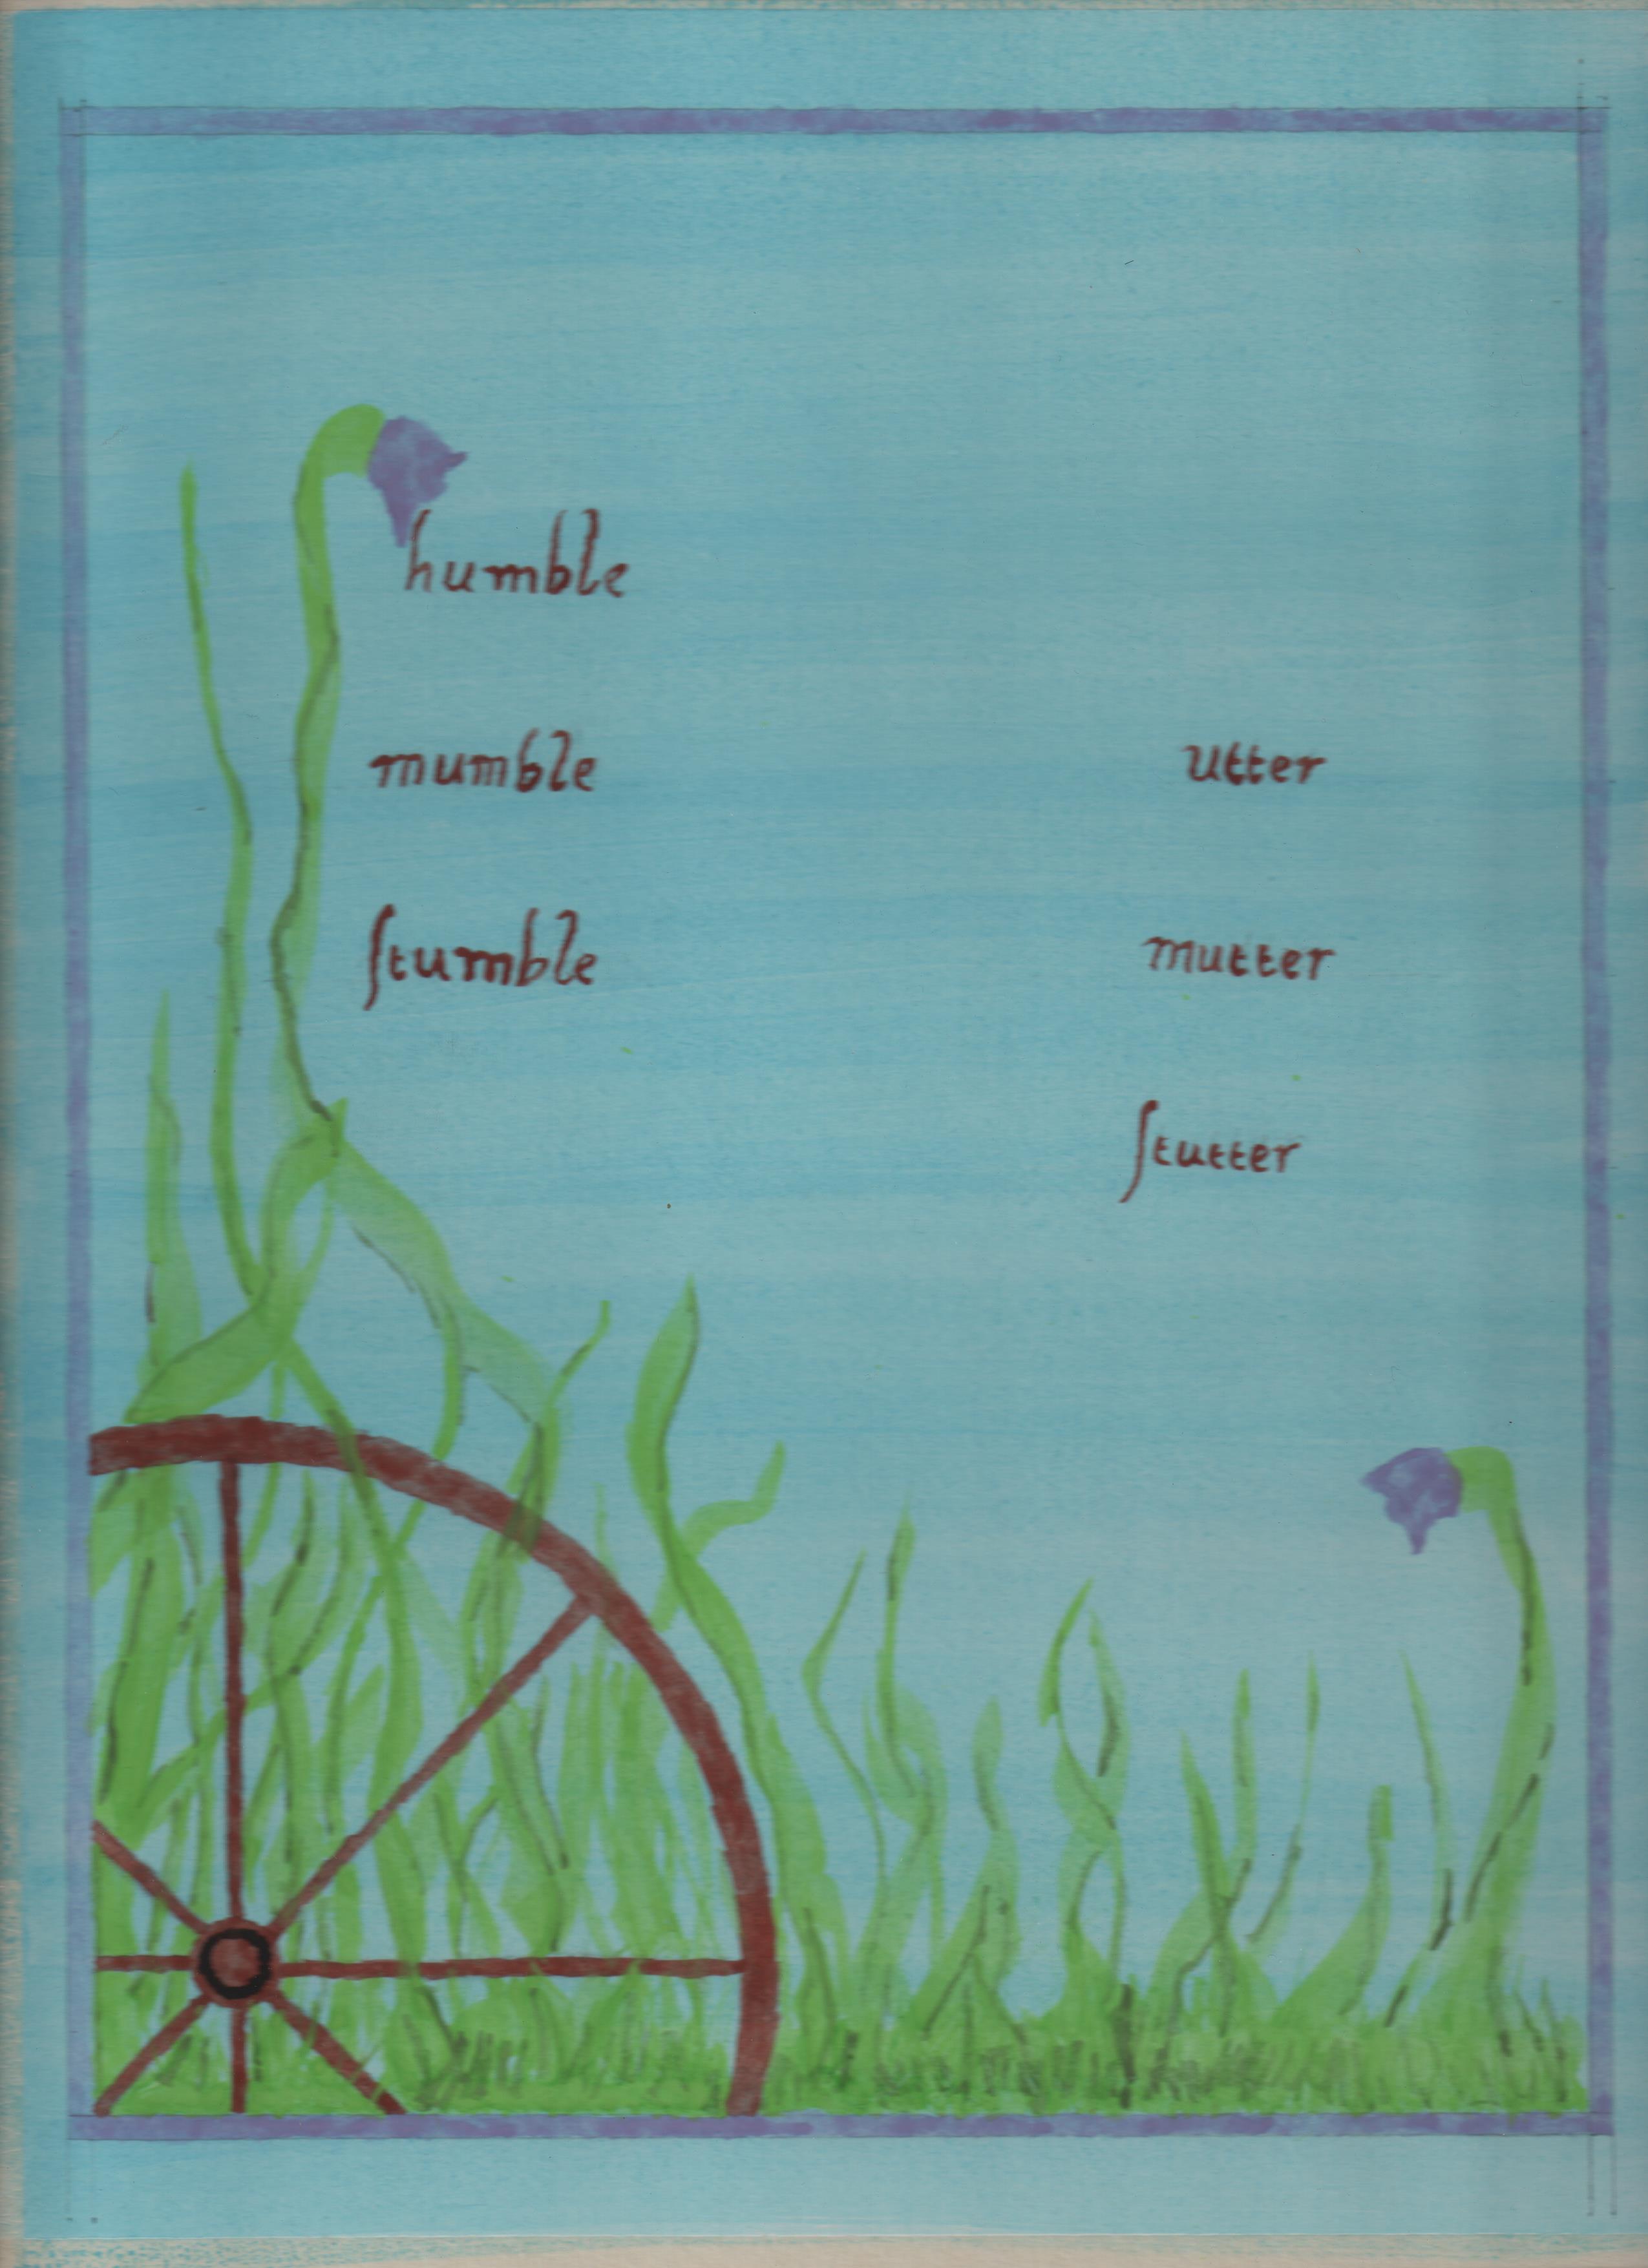 humble
mumble
ſtumble
utter
mutter
ſtutter